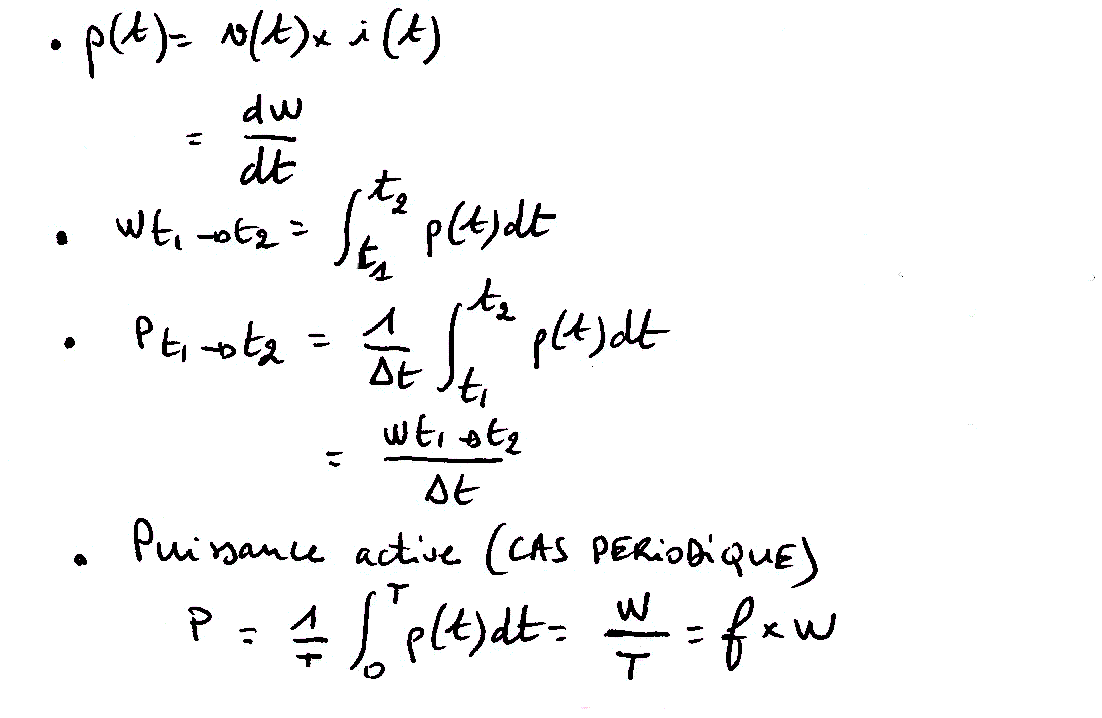 • p(t) = v(t) × i(t)
= dw/dt
• W t₁→t₂ = ∫_{t₁}^{t₂} p(t)dt
• P t₁→t₂ = 1/Δt ∫_{t₁}^{t₂} p(t)dt
= W t₁→t₂ / Δt
• Puissance active (CAS PERiODiQUE)
P = 1/T ∫₀ᵀ p(t)dt = W/T = f × W